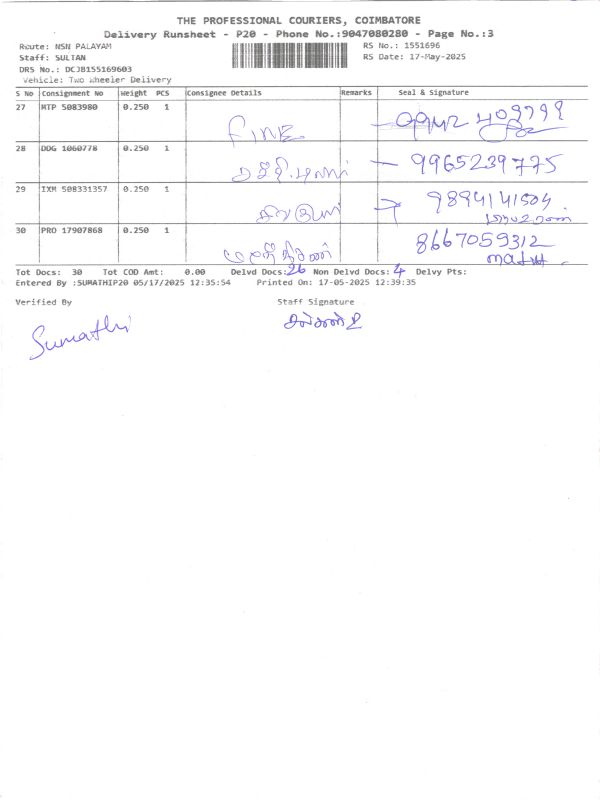 THE PROFESSIONAL COURIERS, COIMBATORE
Delivery Runsheet - P20 - Phone No.:9047080280 - Page No.:3
Route: NSN PALAYAM RS No.: 1551696
Staff: SULTAN RS Date: 17-May-2025
DRS No.: DCJB155169603
Vehicle: Two Wheeler Delivery
S No Consignment No Weight PCS Consignee Details Remarks Seal & Signature
27 MTP 5083980 0.250 1
FINE
28 DDG 1060778 0.250 1
- 9965239775
29 IXM 508331357 0.250 1
9894141504
30 PRO 17907868 0.250 1
8667059312
Tot Docs: 30 Tot COD Amt: 0.00 Delvd Docs:26 Non Delvd Docs:4 Delvy Pts:
Entered By :SUMATHIP20 05/17/2025 12:35:54 Printed On: 17-05-2025 12:39:35
Verified By Staff Signature
Sumathi